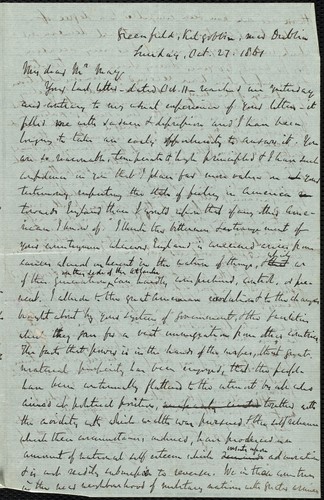 Greenfield, Kilgobbin, near Dublin
Sunday, Oct. 27. 1861
My dear Mr May,
Your last letter - dated Oct. 11 - reached me yesterday
and contrary to my usual experience of your letters it
filled me with sadness & depression and I have been
longing to take an early opportunity to answer it. You
are so reasonable, temperate & high principled & I have such
confidence in you that I place far more value on your
testimony respecting the state of feeling in America
towards England than I would upon that of any other Ame-
rican I know of. I think the bitterness & estrangement of
your countrymen wherever England is concerned arises from
causes almost inherent in the nature of things,
of the generality on this side of the Atlantic can hardly comprehend
I allude to the great American revolution & to the changes
brought about by your system of government, & the facilities
which they gave for a vast immigration from other countries.
The fact that power is in the hands of the masses, that great
material prosperity has been enjoyed, that the people
have been universally flattered to the utmost by all who
aimed at political position, together with
the avidity with which wealth was pursued, & the self reliance
which these circumstances induced, have produced an
amount of national self esteem which
is not easily submissive to reverses. We in these countries
in the near neighbourhood of military nations with great armies